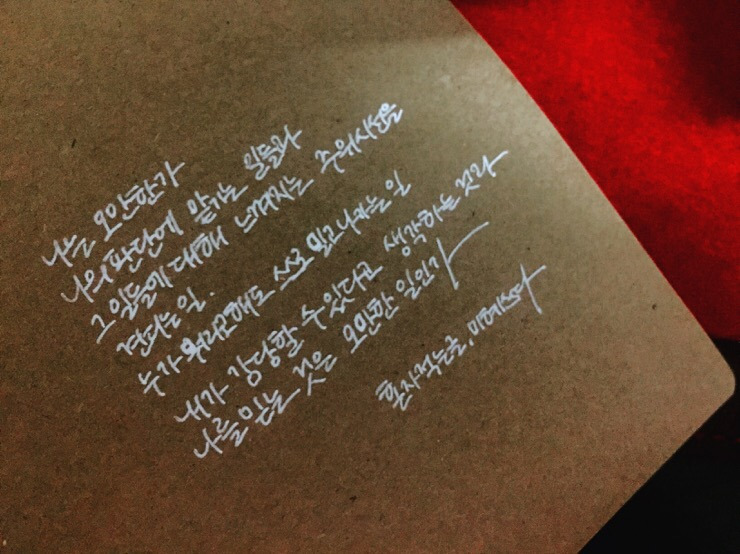 나는 오만한가
나의 판단에 맡기는 일들과
그 일들에 대해 느껴지는 주위시선을
견디는 일.
누가 뭐라고해도 스스로 믿고나가는 일
내가 감당할 수 있다고 생각하는 것과
나를 믿는 것은 오만한 일인가
혼자적는글.